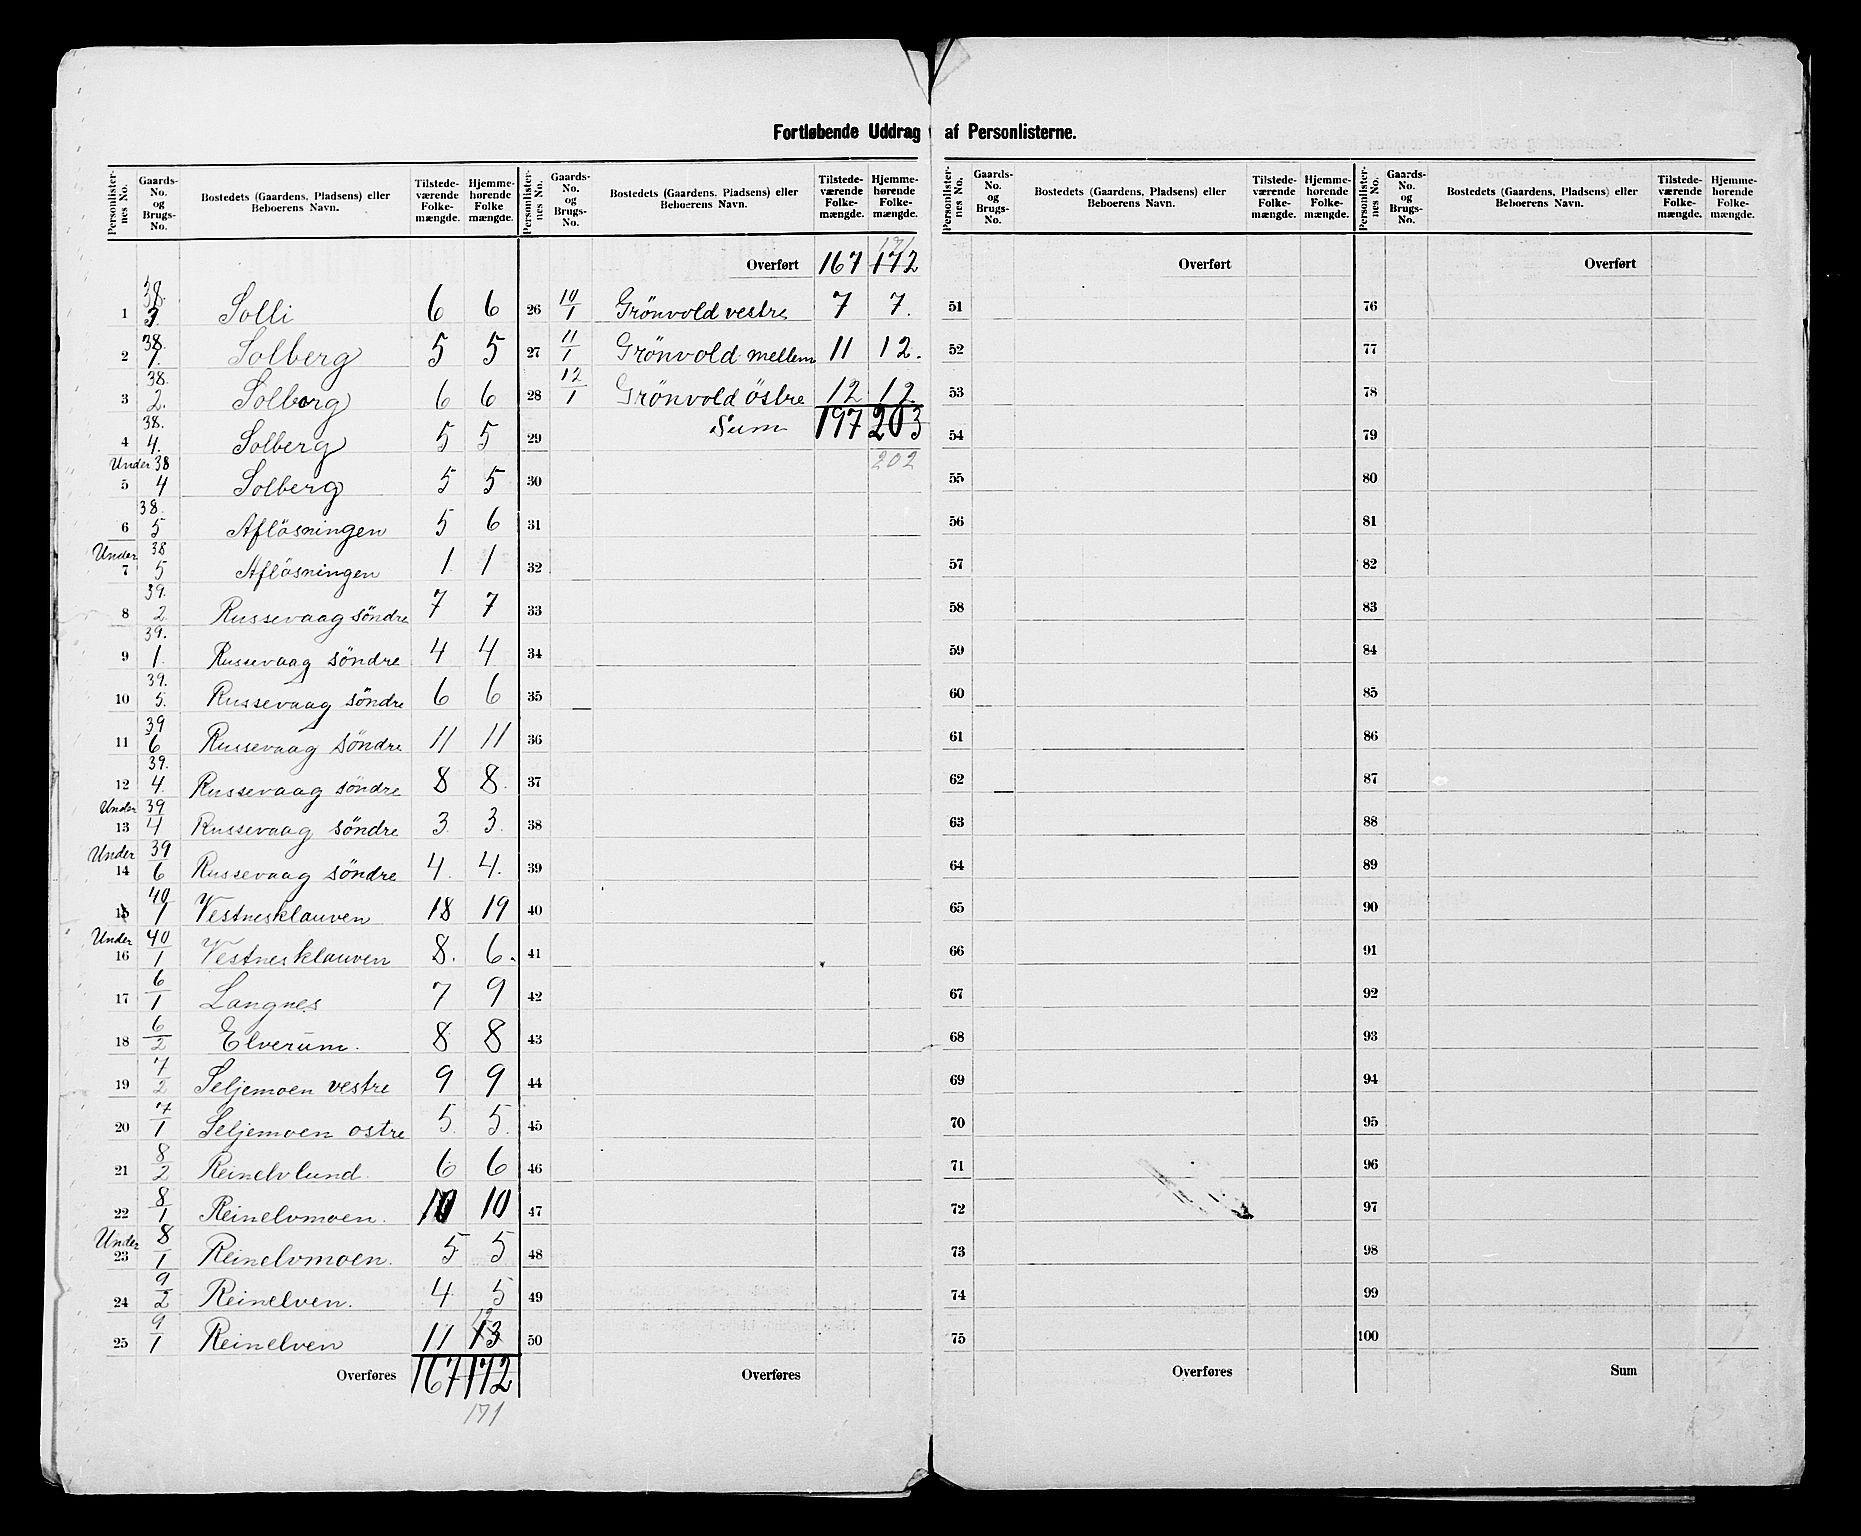 Fortløbende Uddrag af Personlisterne.
Personlister-nes No. Gaards-No. og Brugs-No. Bostedets (Gaardens, Pladsens) eller Beboerens Navn. Tilstede-værende Folke-mængde. Hjemme-hørende Folke mængde.
1 38. 3. Solli 6 6
2 38. 1. Solberg 5 5
3 38. 2. Solberg 6 6
4 38. 4. Solberg 5 5
5 Under 38 4 Solberg 5 5
6 38. 5 Aflösningen 5 6
7 Under 38 5 Aflösningen 1 1
8 39. 2 Russevaag söndre 7 7
9 39. 1. Russevaag söndre 4 4
10 39. 5. Russevaag söndre 6 6
11 39 6 Russevaag söndre 11 11
12 39. 4. Russevaag söndre 8 8.
13 Under 39 4 Russevaag söndre 3. 3.
14 Under 39 6 Russevaag söndre 4. 4.
15 40 1 Vestnesklauven 18 19
16 Under 40 1 Vestnesklauven 8. 6.
17 6 1 Langnes 7 9
18 6 2 Elverum. 8 8
19 7 2 Seljemoen vestre 9 9
20 7 1 Seljemoen ostre 5. 5.
21 8 2 Reinelvlund. 6 6
22 8 1 Reinelvmoen. 10 10
23 Under 8 1 Reinelvmoen. 5 5
24 9 2 Reinelven. 4 5
25 9 1 Reinelven 11 13 12
Overføres 167 172
171
Personlister-nes No. Gaards-No. og Brugs-No. Bostedets (Gaardens, Pladsens) eller Beboerens Navn. Tilstede-værende Folke-mængde. Hjemme-hørende Folke-mængde.
171
Overført 167 172
26 10 1 Grönvold vestre 7 7.
27 11 1 Grönvold mellem 11 12.
28 12 1 Grönvold östre 12 12
29 Sum 197 203
202
30
31
32
33
34
35
36
37
38
39
40
41
42
43
44
45
46
47
48
49
50
Overføres
Personlister-nes No. Gaards-No. og Brugs-No. Bostedets (Gaardens, Pladsens) eller Beboerens Navn. Tilstede-værende Folke-mængde. Hjemme-hørende Folke-mængde.
Overført
51
52
53
54
55
56
57
58
59
60
61
62
63
64
65
66
67
68
69
70
71
72
73
74
75
Overføres
Personlister-nes No. Gaards-No. og Brugs-No. Bostedets (Gaardens, Pladsens) eller Beboerens Navn. Tilstede-værende Folke-mængde. Hjemme-hørende Folke-mængde.
Overført
76
77
78
79
80
81
82
83
84
85
86
87
88
89
90
91
92
93
94
95
96
97
98
99
100
Sum